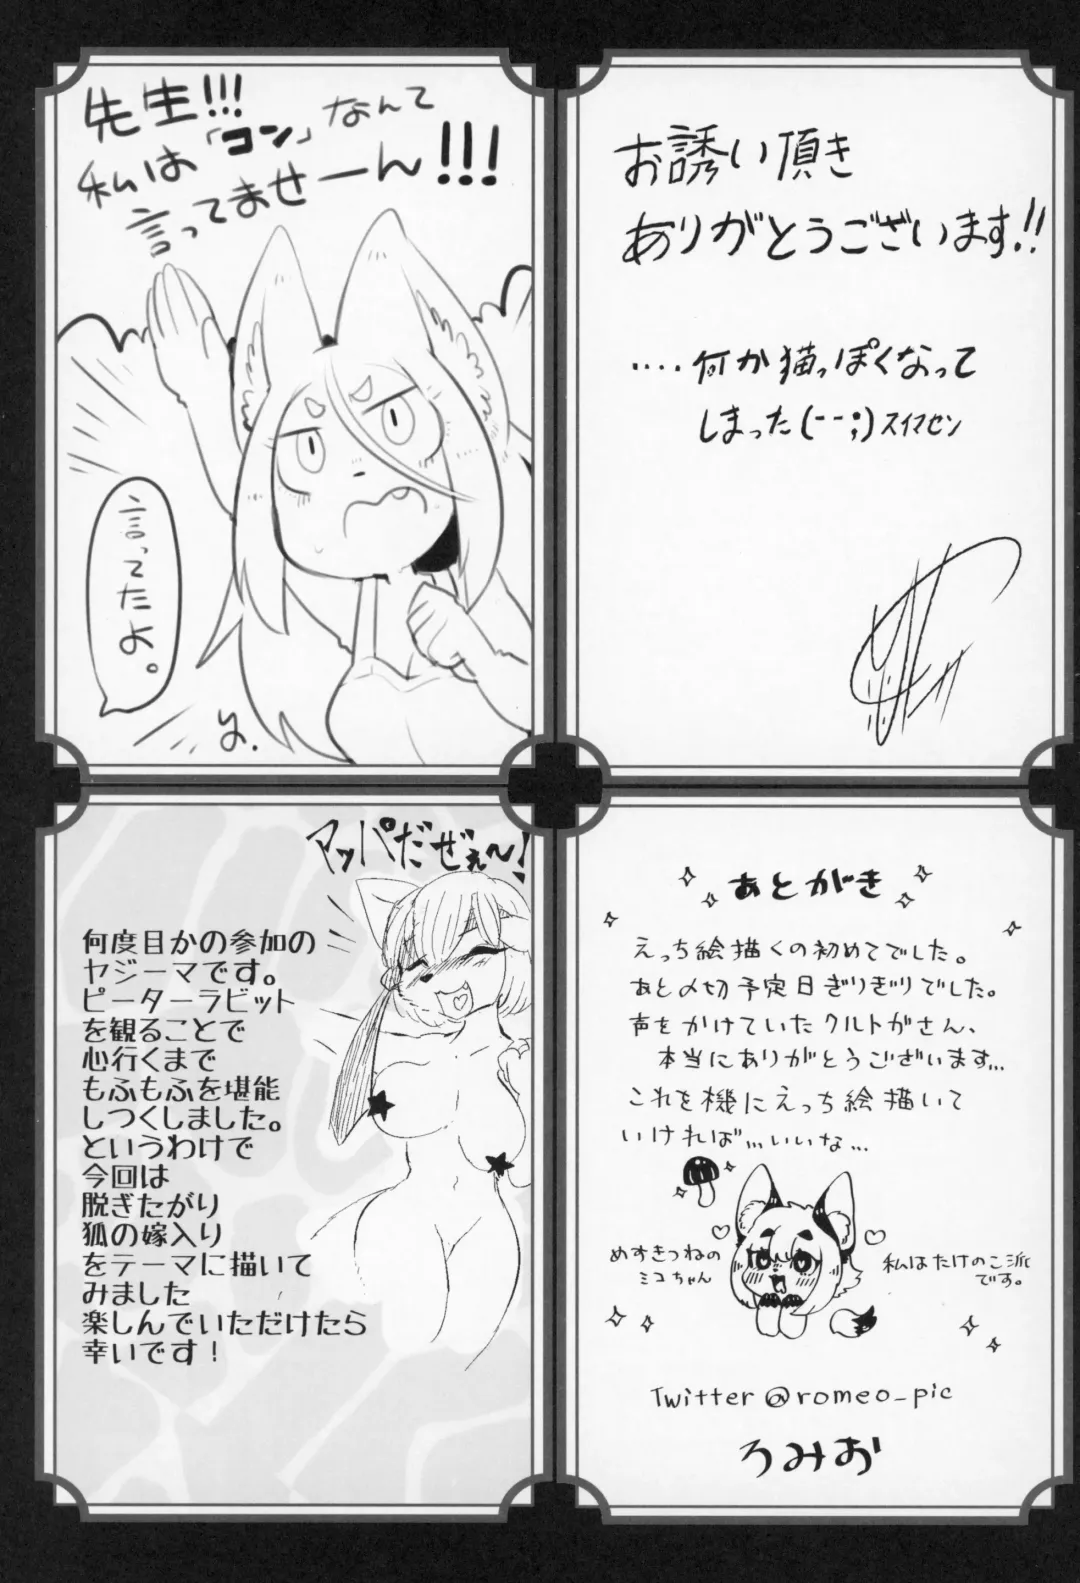 先生!!!
私は「コン」なんて
言ってませーん!!!
言ってたよ。
お誘い頂き
ありがとうございます!!
....何か猫っぽくなって
しまった(--;)スイマセン
マッパだぜぇ〜!
何度目かの参加の
ヤジーマです。
ピーターラビット
を観ることで
心行くまで
もふもふを堪能
しつくしました。
というわけで
今回は
脱ぎたがり
狐の嫁入り
をテーマに描いて
みました
楽しんでいただけたら
幸いです！
あとがき
えっち絵描くの初めてでした。
あと〆切予定日ぎりぎりでした。
声をかけていたクルトがさん、
本当にありがとうございます...
これを機にえっち絵描いて
いければ...いいな...
めすきつねの
ミコちゃん
私はたけのこ派
です。
Twitter @romeo_pic
ろみお